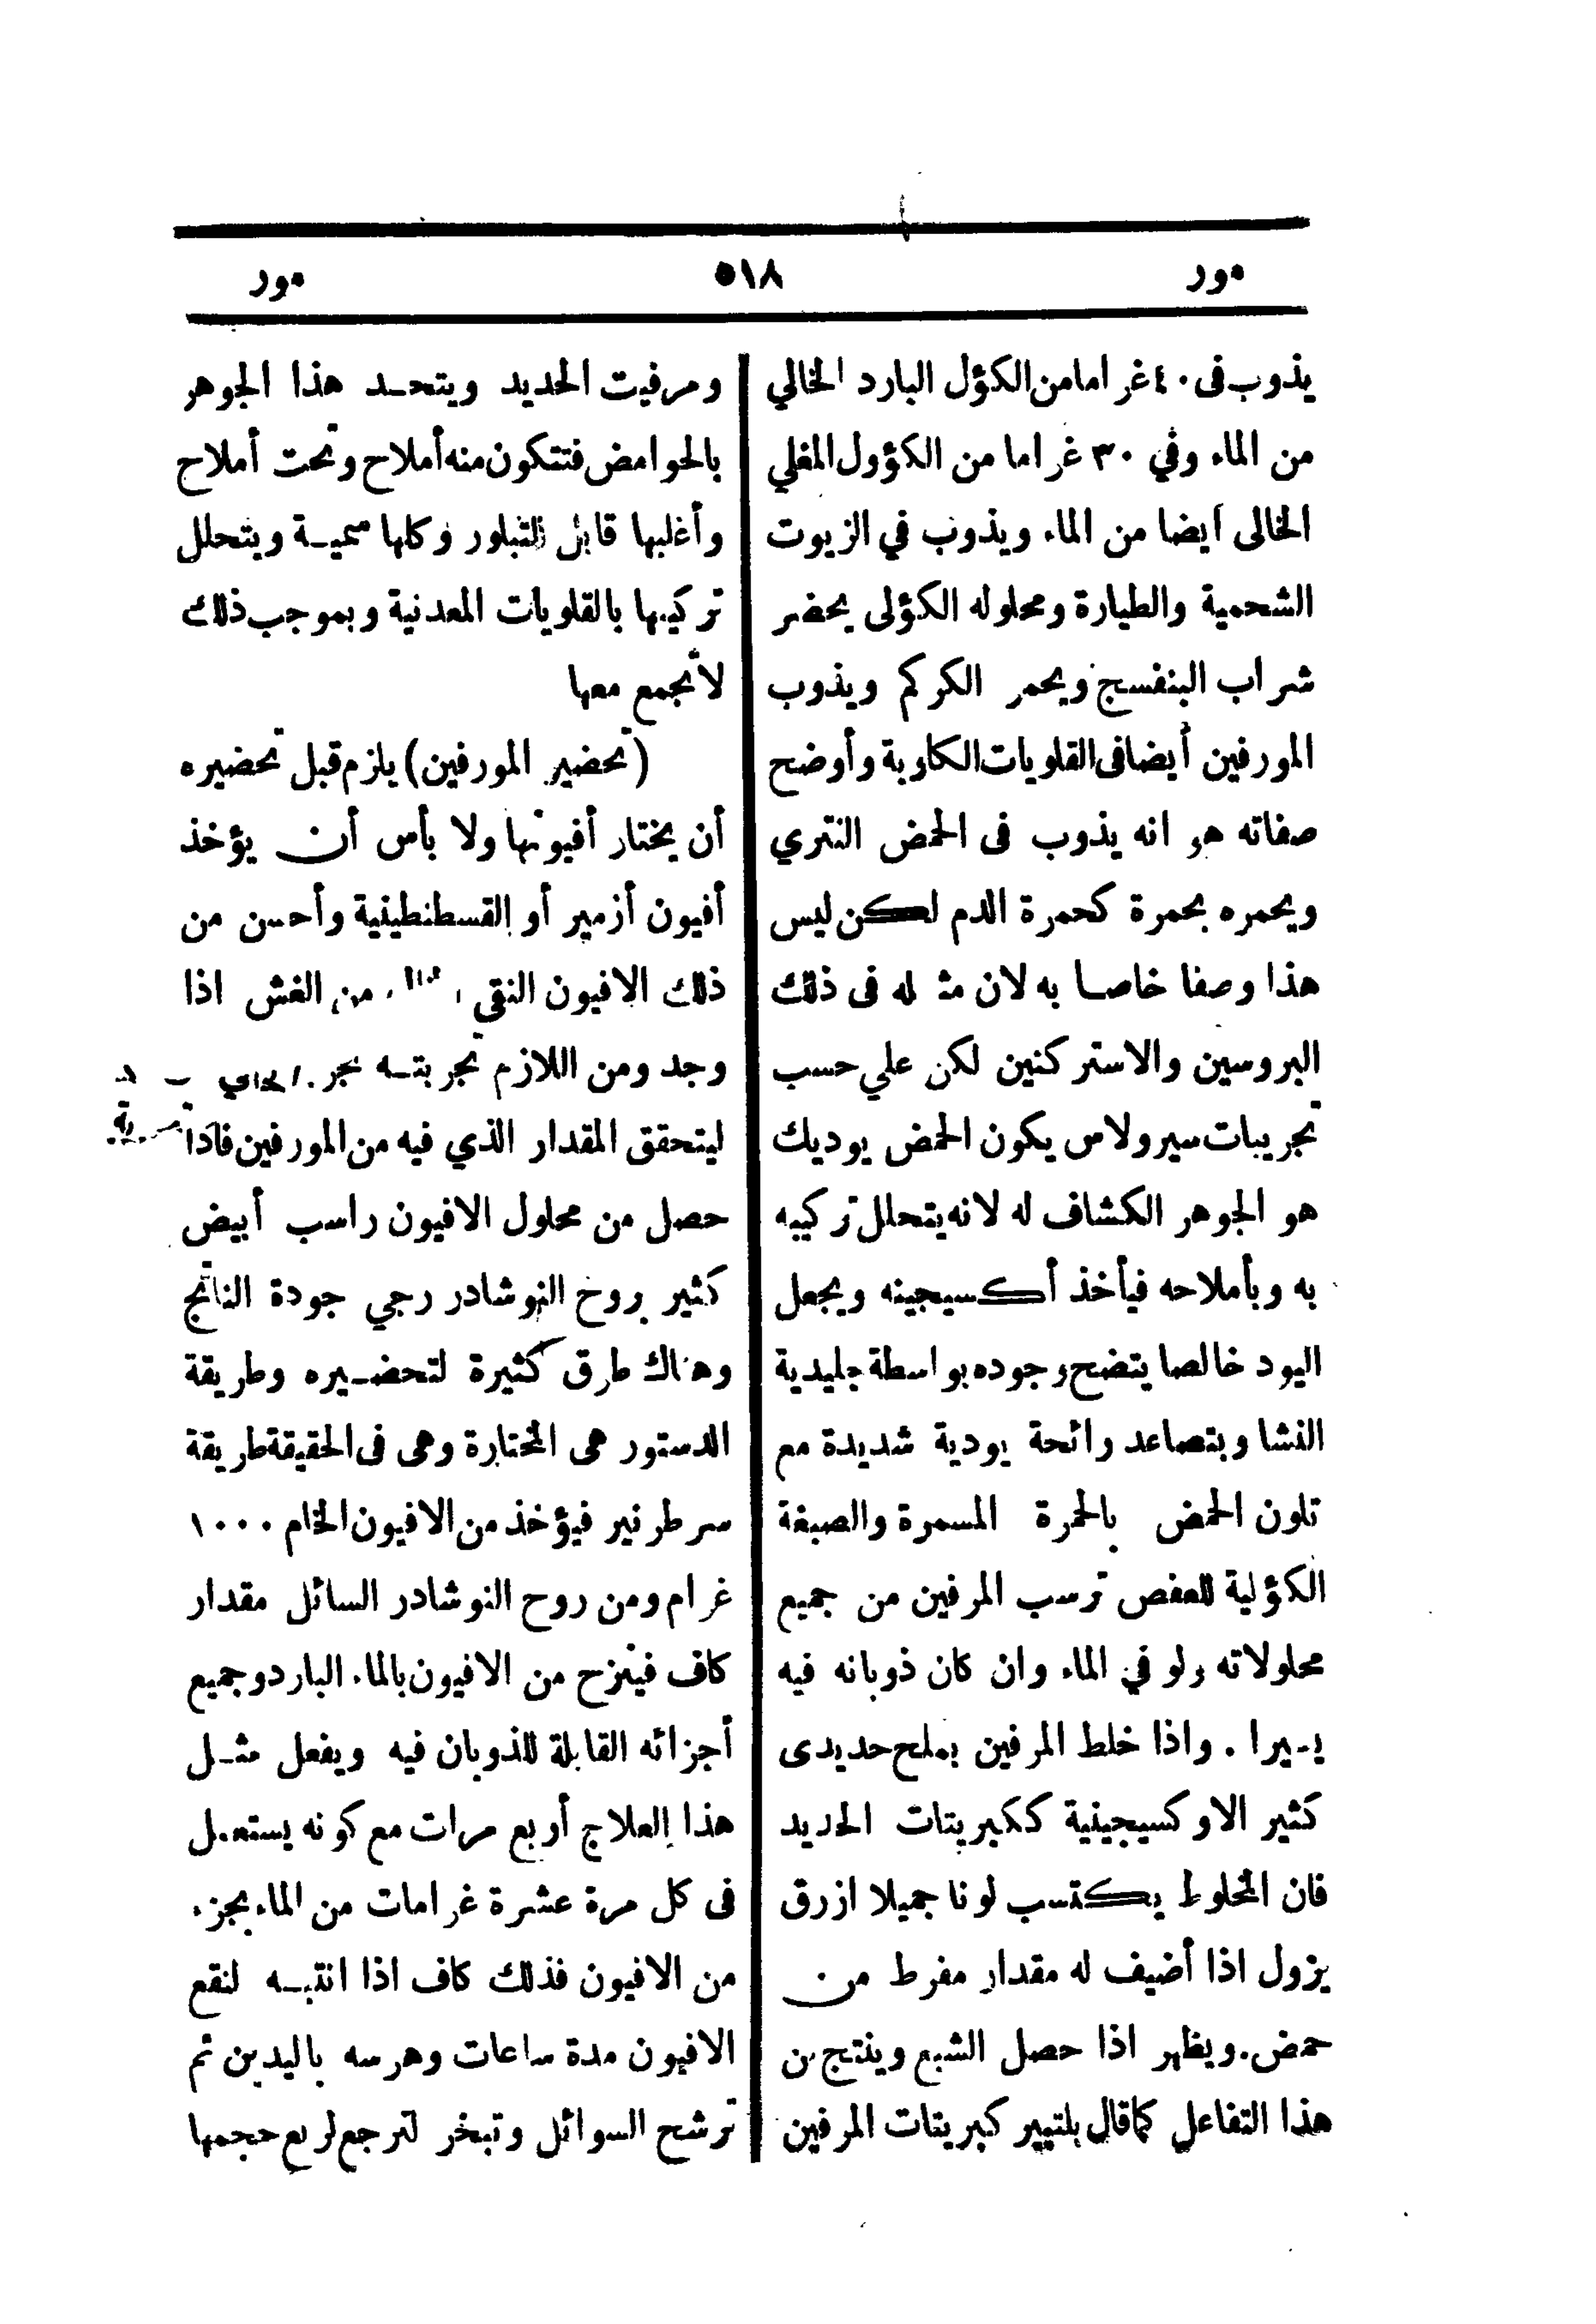 مور ٥١٨ مور
يذوب فى ٤٠ غراما من الكؤل البارد الخالي
من الماء وفي ٣٠ غراما من الكؤول المغلي
الخالى أيضا من الماء ويذوب في الزيوت
الشحمية والطيارة ومحلوله الكؤلى يخضر
شراب البنفسج ويحمر الكركم ويذوب
المورفين أيضا فى القلويات الكاوية وأوضح
صفاته هو انه يذوب فى الحمض النتري
ويحمره بحمرة كحمرة الدم لكن ليس
هذا وصفا خاصا به لان مثله فى ذلك
البروسين والاستركنين لكن علي حسب
تجريبات سيرولاس يكون الحمض يوديك
هو الجوهر الكشاف له لانه يتحلل تركيبه
به وبأملاحه فيأخذ أكسيجينه ويجعل
اليود خالصا يتضح وجوده بواسطة جليدية
النشا ويتصاعد رائحة يودية شديدة مع
تلون الحمض بالحمرة المسمرة والصبغة
الكؤلية للعفص ترسب المرفين من جميع
محلولاته ولو في الماء وان كان ذوبانه فيه
يسيرا . واذا خلط المرفين بملح حديدى
كثير الاوكسيجينية ككبريتات الحديد
فان المخلوط يكتسب لونا جميلا ازرق
يزول اذا أضيف له مقدار مفرط من
حمض . ويظهر اذا حصل الشبع وينتج من
هذا التفاعل كما قال بلتيير كبريتات المرفين
ومرفيت الحديد ويتحد هذا الجوهر
بالحوامض فتتكون منه أملاح وتحت أملاح
وأغلبها قابل للتبلور وكلها سمية ويتحلل
تركيبها بالقلويات المعدنية وبموجب ذلك
لا تجمع معها
(تحضير المورفين) يلزم قبل تحضيره
أن يختار أفيونها ولا بأس أن يؤخذ
أفيون أزمير أو القسطنطينية وأحسن من
ذلك الافيون النقي من الغش اذا
وجد ومن اللازم تجربته
ليتحقق المقدار الذي فيه من المورفين فاذا
حصل من محلول الافيون راسب أبيض
كثير بروح النوشادر رجي جودة الناتج
وهناك طرق كثيرة لتحضيره وطريقة
الدستور هى المختارة وهى فى الحقيقة طريقة
سرطرنير فيؤخذ من الافيون الخام ١٠٠٠
غرام ومن روح النوشادر السائل مقدار
كاف فينزح من الافيون بالماء البارد جميع
أجزائه القابلة للذوبان فيه ويفعل مثل
هذا العلاج أربع مرات مع كونه يستعمل
فى كل مرة عشرة غرامات من الماء بجزء
من الافيون فذلك كاف اذا انتبه لنقع
الافيون مدة ساعات وهرسه باليدين ثم
ترشح السوائل وتبخر لترجع لربع حجمها